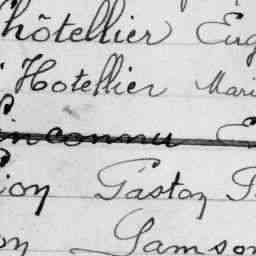 hôtellier Eug
Hotellier Mari
inconnu E
ion Gaston
on Samson